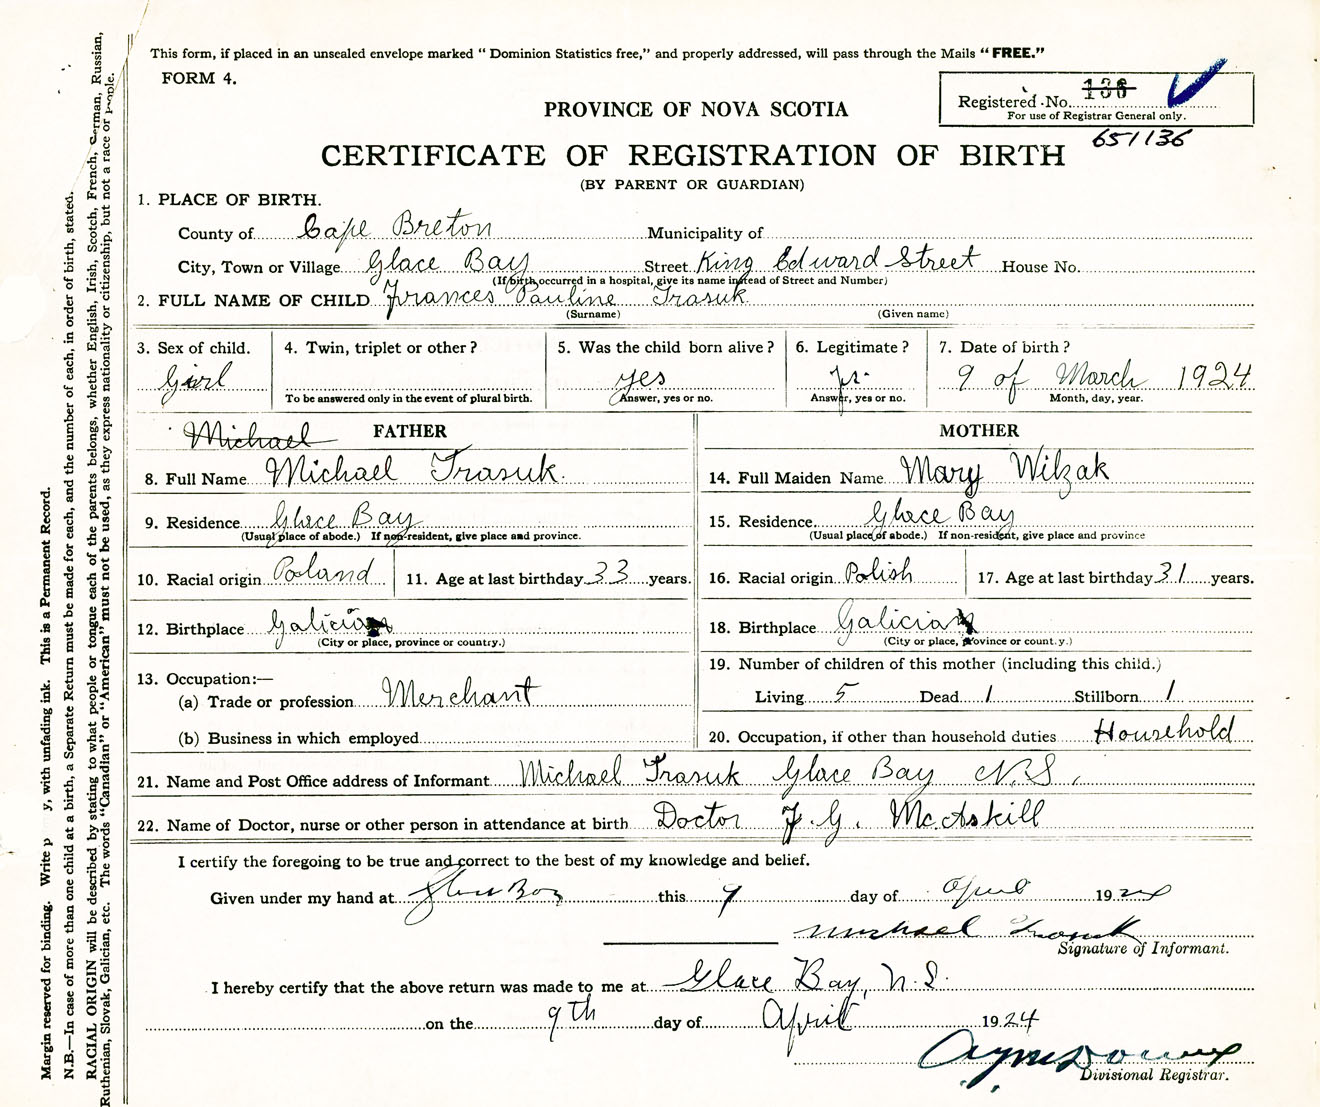 This form, if placed in an unsealed envelope marked " Dominion Statistics free," and properly addressed, will pass through the Mails "FREE."
FORM 4.
Registered No. 136
For use of Registrar General only.
651136
PROVINCE OF NOVA SCOTIA
CERTIFICATE OF REGISTRATION OF BIRTH
(BY PARENT OR GUARDIAN)
1. PLACE OF BIRTH.
County of Cape Breton Municipality of
City, Town or Village Glace Bay Street King Edward Street House No.
(If birth occurred in a hospital, give its name instead of Street and Number)
2. FULL NAME OF CHILD Frances Pauline Trasuk
(Surname) (Given name)
3. Sex of child. 4. Twin, triplet or other? 5. Was the child born alive? 6. Legitimate? 7. Date of birth?
Girl yes 9 of March 1924
To be answered only in the event of plural birth. Answer, yes or no. Answer, yes or no. Month, day, year.
Michael FATHER MOTHER
8. Full Name Michael Trasuk. 14. Full Maiden Name Mary Wilzak
9. Residence Glace Bay 15. Residence. Glace Bay
(Usual place of abode.) If non-resident, give place and province. (Usual place of abode.) If non-resident, give place and province
10. Racial origin Poland 11. Age at last birthday 33 years. 16. Racial origin Polish 17. Age at last birthday 31 years.
12. Birthplace Galicia 18. Birthplace Galicia
(City or place, province or country.) (City or place, province or count.y.)
13. Occupation:— 19. Number of children of this mother (including this child.)
(a) Trade or profession Merchant Living 5 Dead 1 Stillborn 1
(b) Business in which employed 20. Occupation, if other than household duties Household
21. Name and Post Office address of Informant Michael Trasuk Glace Bay N.S.
22. Name of Doctor, nurse or other person in attendance at birth Doctor F. G. McAskill
I certify the foregoing to be true and correct to the best of my knowledge and belief.
Given under my hand at Glace Bay this 9 day of April 1924
Michael Trasuk
Signature of Informant.
I hereby certify that the above return was made to me at Glace Bay, N.S.
on the 9th day of April 1924
Divisional Registrar.
Margin reserved for binding. Write p y, with unfading ink. This is a Permanent Record.
N.B.—In case of more than one child at a birth, a Separate Return must be made for each, and the number of each, in order of birth, stated.
RACIAL ORIGIN will be described by stating to what people or tongue each of the parents belongs, whether English, Irish, Scotch, French, German, Russian,
Ruthenian, Slovak, Galician, etc. The words "Canadian" or "American" must not be used, as they express nationality or citizenship, but not a race or people.